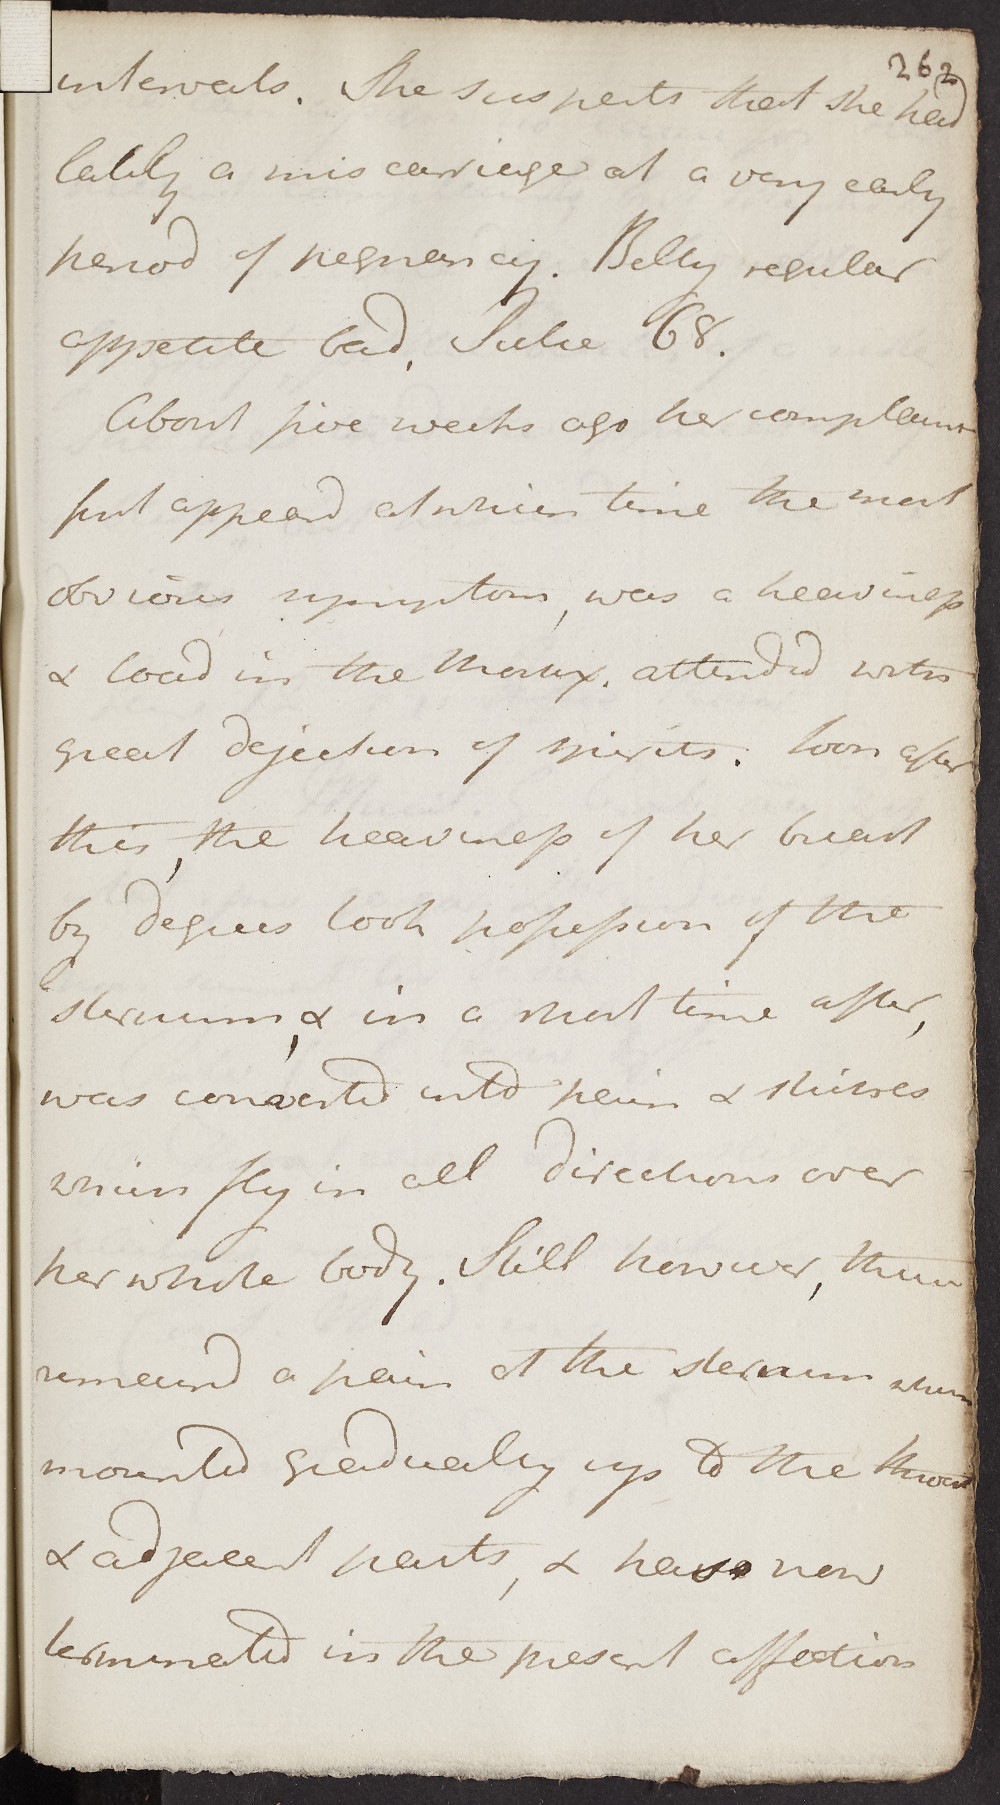 262
intervals. She suspects that she had
lately a miscarriage at a very early
period of pregnancy. Belly regular
appetite bad, Pulse 68.
About five weeks ago her complaint
first appeard at which time the most
obvious symptom, was a heaviness
& load in the thorax. attended with
great dejection of spirits. Soon after
this, the heaviness of her breast
by degrees took possession of the
sternum, & in a short time after,
was converted into pain & stitches
which fly in all directions over
her whole body. Still however, there
remaind a pain at the sternum which
mounted gradually up to the throat
& adjacent parts, & has now
terminated in the present affection